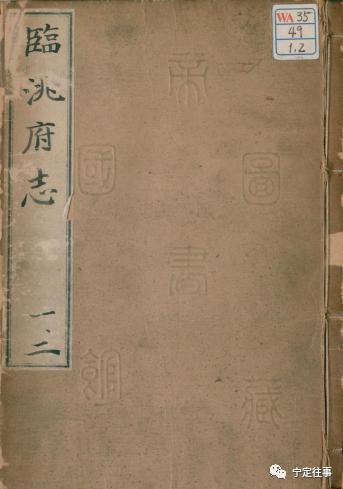 臨洮府志 一.二
WA 35
49
1.2
帝
國圖
書
館藏
宁定往事